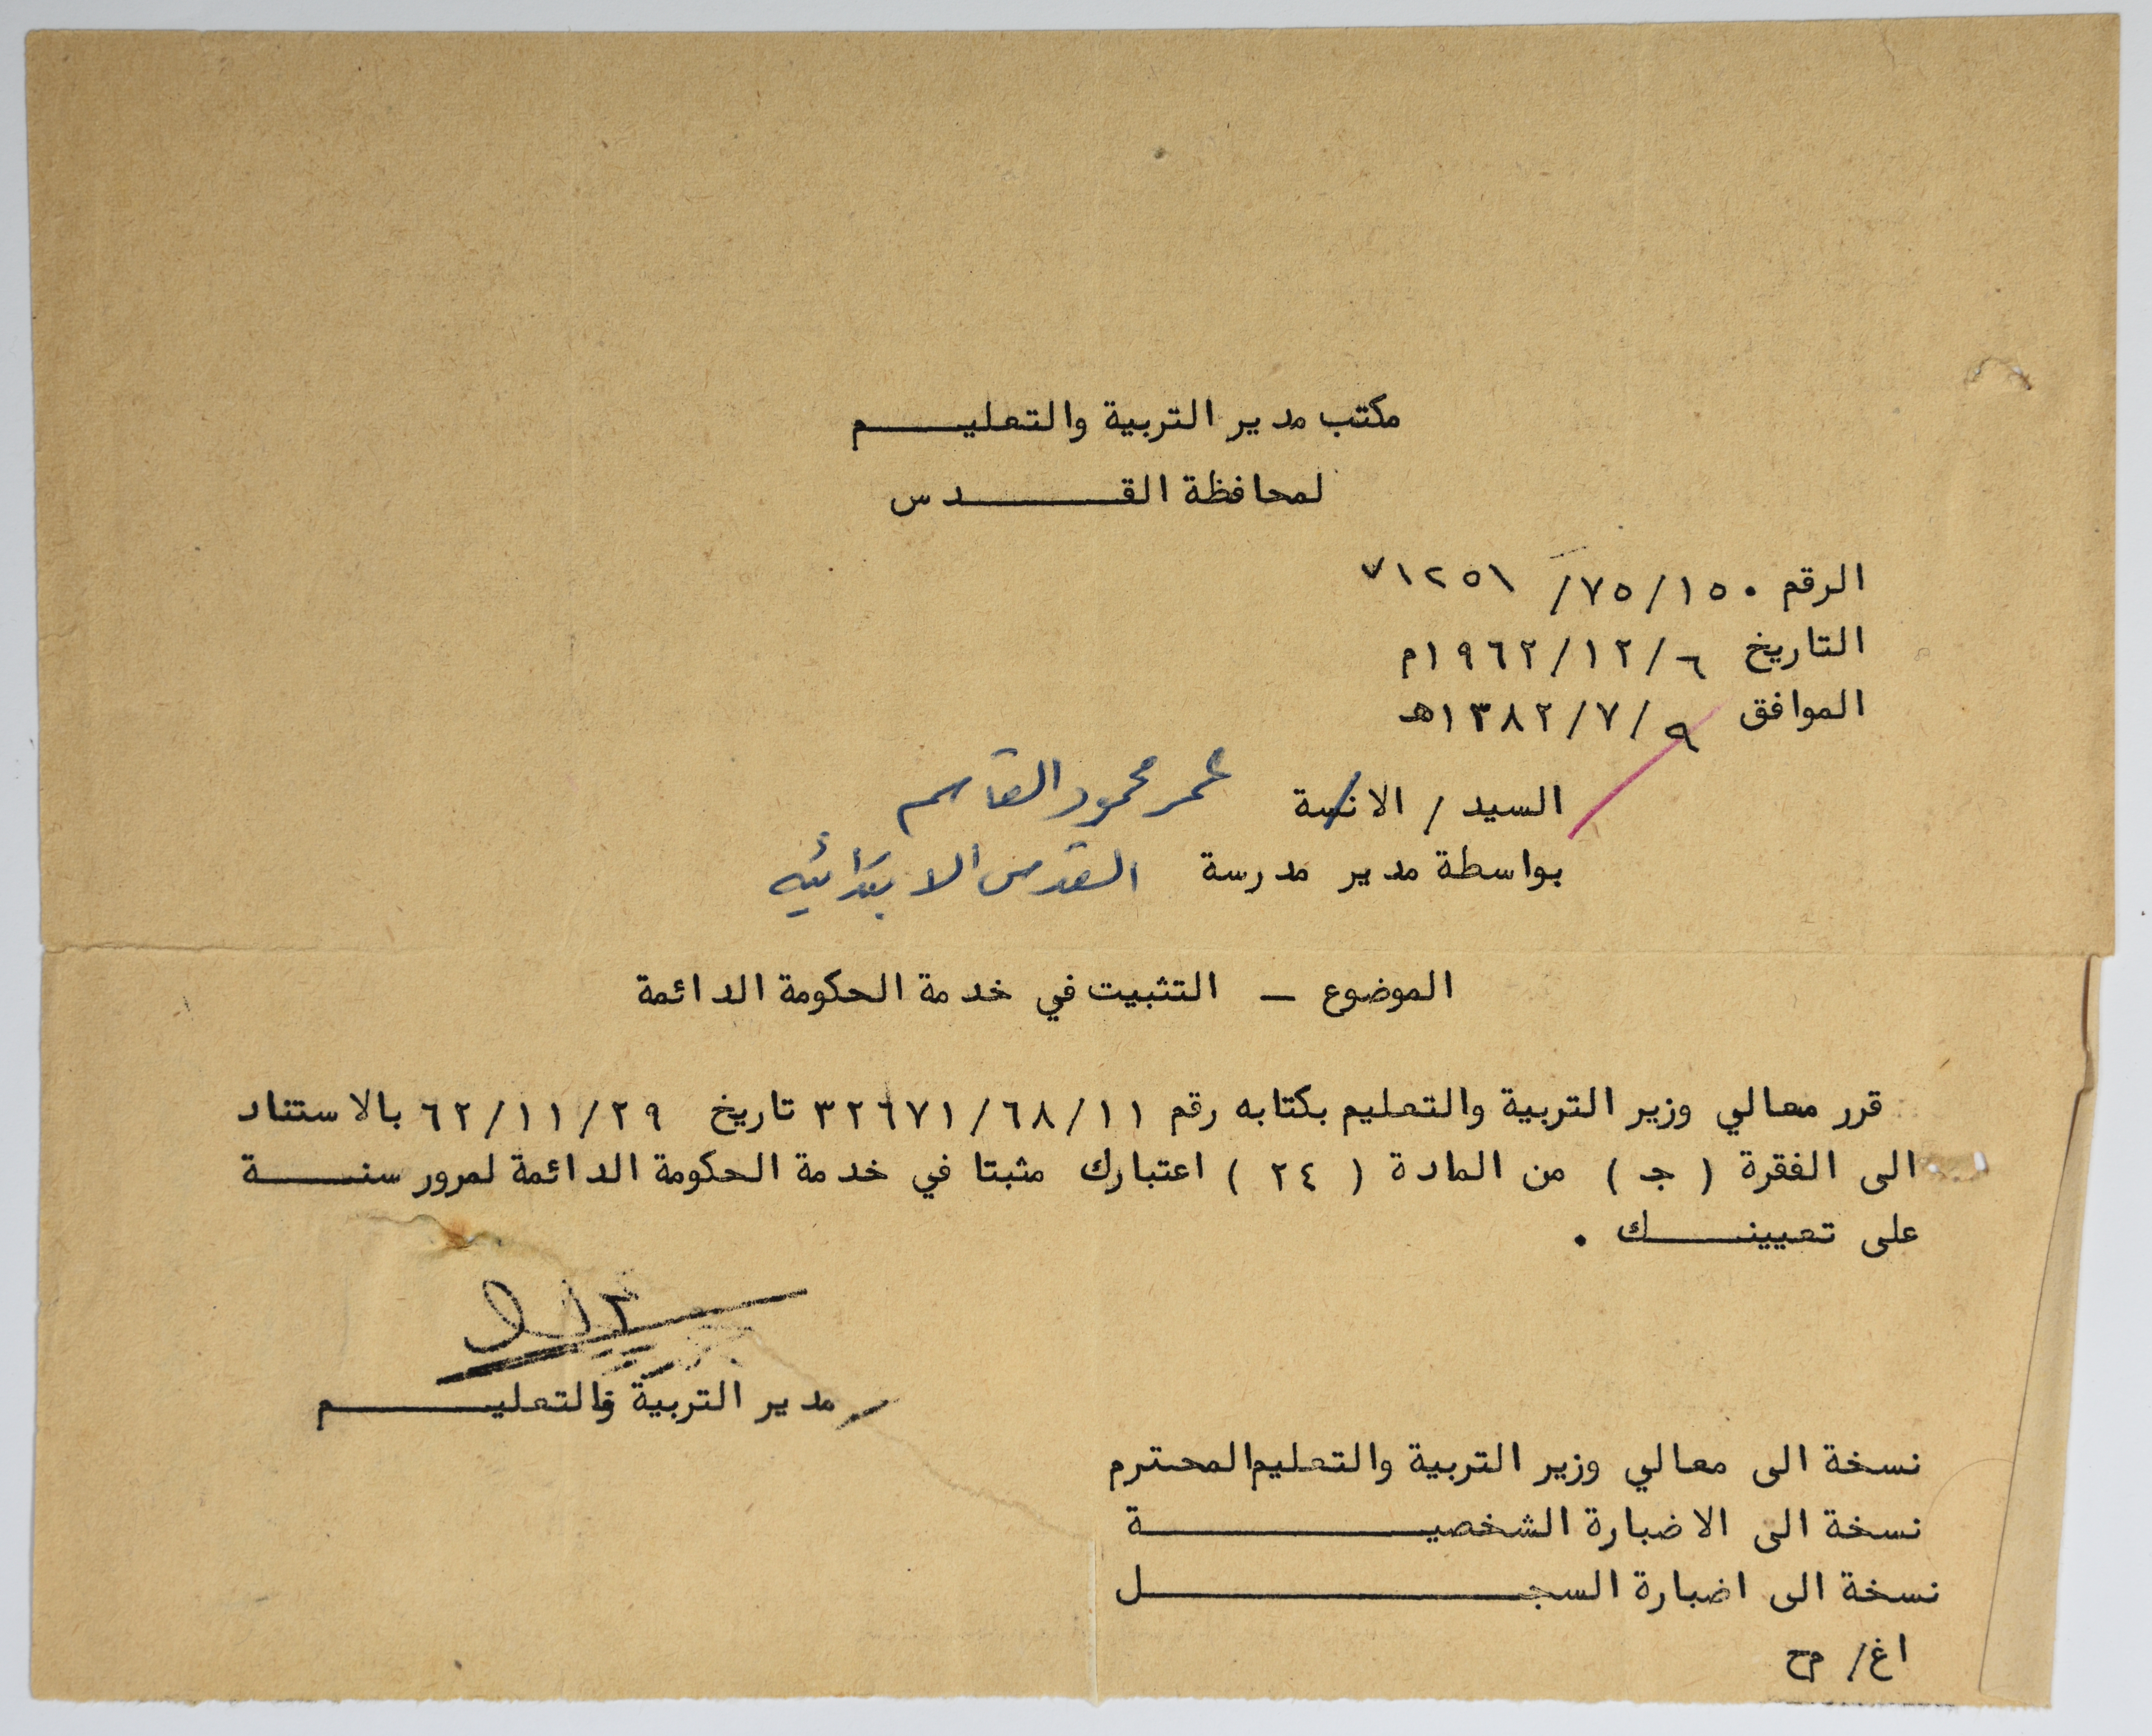 مكتب مدير التربية والتعليم
لمحافظة القدس
الرقم ٧٥/١٥٠/ ٧١٢٥١
التاريخ ١٩٦٢/١٢/٦م
الموافق ١٣٨٢/٧/٩هـ
السيد / الانسة عمر محمود القاسم
بواسطة مدير مدرسة القدس الابتدائيه
الموضوع – التثبيت في خدمة الحكومة الدائمة
قرر معالي وزير التربية والتعليم بكتابه رقم ٣٢٦٧١/٦٨/١١ تاريخ ٦٢/١١/٢٩ بالاستناد
الى الفقرة ( جـ ) من المادة ( ٢٤ ) اعتبارك مثبتا في خدمة الحكومة الدائمة لمرور سنة
على تعيينك .
مدير التربية والتعليم
نسخة الى معالي وزير التربية والتعليم المحترم
نسخة الى الاضبارة الشخصية
نسخة الى اضبارة السجل
اغ/ مح